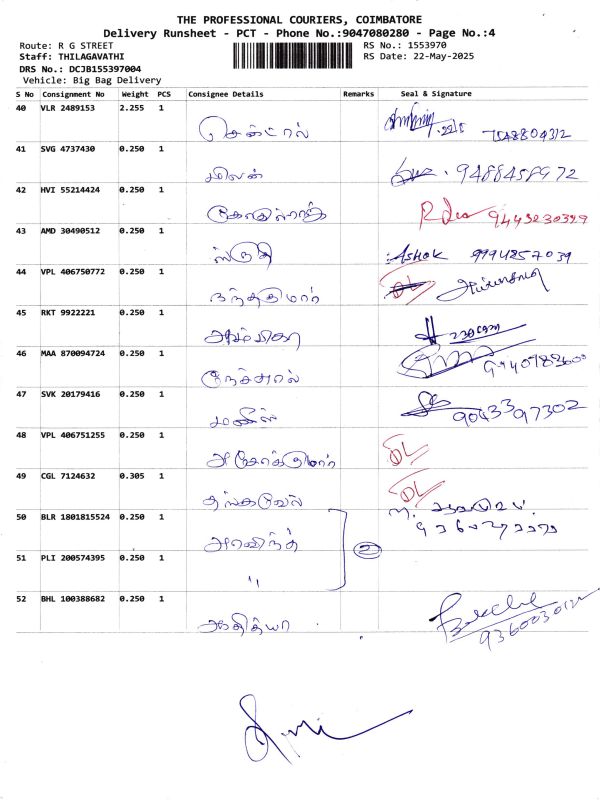 THE PROFESSIONAL COURIERS, COIMBATORE
Delivery Runsheet - PCT - Phone No.:9047080280 - Page No.:4
Route: R G STREET
RS No.: 1553970
Staff: THILAGAVATHI
RS Date: 22-May-2025
DRS No.: DCJB155397004
Vehicle: Big Bag Delivery
S No Consignment No Weight PCS Consignee Details Remarks Seal & Signature
40 VLR 2489153 2.255 1
41 SVG 4737430 0.250 1
மிலன் 9488458972
42 HVI 55214424 0.250 1
9443230329
43 AMD 30490512 0.250 1
ஸ்ருதி Ashok 9994257039
44 VPL 406750772 0.250 1
நந்தகுமார் DL
45 RKT 9922221 0.250 1
அம்பிகா
46 MAA 870094724 0.250 1
47 SVK 20179416 0.250 1
மணிஷ் 9043397302
48 VPL 406751255 0.250 1
அசோக்குமார் DL
49 CGL 7124632 0.305 1
தங்கவேல் DL
50 BLR 1801815524 0.250 1
அரவிந்த் 2
51 PLI 200574395 0.250 1
"
52 BHL 100388682 0.250 1
ஆதித்யா